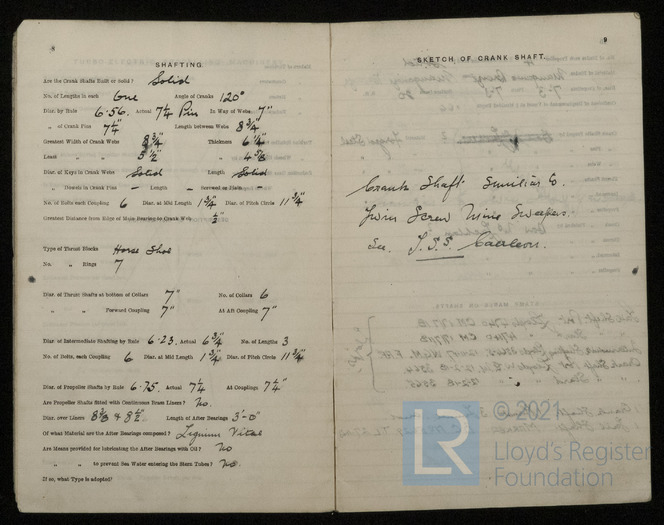 8
SHAFTING
Are the Crank Shafts Built or Solid? Solid
No. of Lengths in each One Angle of Cranks 120°
Diar. by Rule 6.56 Actual 7¼ Pin In Way of Webs 7"
„ of Crank Pins 7¼" Length between Webs 8¾"
Greatest Width of Crank Webs 8¾" Thickness 6¼"
Least „ „ 5½" „ 4⅝
Diar. of Keys in Crank Webs Solid Length Solid
„ Dowels in Crank Pins – Length – Screwed or Plain –
No. of Bolts each Coupling 6 Diar. at Mid Length 1¾" Diar. of Pitch Circle 11¾"
Greatest Distance from Edge of Main Bearing to Crank Web ½"
Type of Thrust Blocks Horse Shoe
No. „ Rings 7
Diar. of Thrust Shafts at bottom of Collars 7" No. of Collars 6
„ „ Forward Coupling 7" At Aft Coupling 7"
Diar. of Intermediate Shafting by Rule 6.23 Actual 6¾" No. of Lengths 3
No. of Bolts, each Coupling 6 Diar. at Mid Length 1¾" Diar. of Pitch Circle 11¾"
Diar. of Propeller Shafts by Rule 6.75 Actual 7¼ At Couplings 7¼"
Are Propeller Shafts fitted with Continuous Brass Liners? No.
Diar. over Liners 8⅜ & 8½" Length of After Bearings 3'-0"
Of what Material are the After Bearings composed? Lignum Vitae
Are Means provided for lubricating the After Bearings with Oil? No
„ „ to prevent Sea Water entering the Stern Tubes? No.
If so, what Type is adopted?
9
SKETCH OF CRANK SHAFT.
Crank Shaft Similar to
Twin Screw Mine Sweepers.
See T.S.S. Caerleon.
© 2021
LR
Lloyd's Register
Foundation